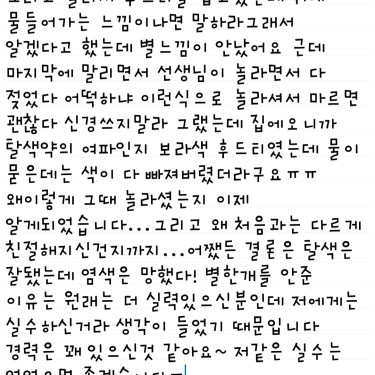 물들어가는 느낌이나면 말하라그래서
알겠다고 했는데 별느낌이 안났어요 근데
마지막에 말리면서 선생님이 놀라면서 다
젖었다 어떡하냐 이런식으로 놀라셔서 마르면
괜찮다 신경쓰지말라 그랬는데 집에오니까
탈색약의 여파인지 보라색 후드티였는데 물이
묻은데는 색이 다 빠져버렸더라구요ㅠㅠ
왜이렇게 그때 놀라셨는지 이제
알게되었습니다...그리고 왜처음과는 다르게
친절해지신건지까지...어쨌든 결론은 탈색은
잘됐는데 염색은 망했다! 별한개를 안준
이유는 원래는 더 실력있으신분인데 저에게는
실수하신거라 생각이 들었기 때문입니다
경력은 꽤있으신것 같아요~ 저같은 실수는